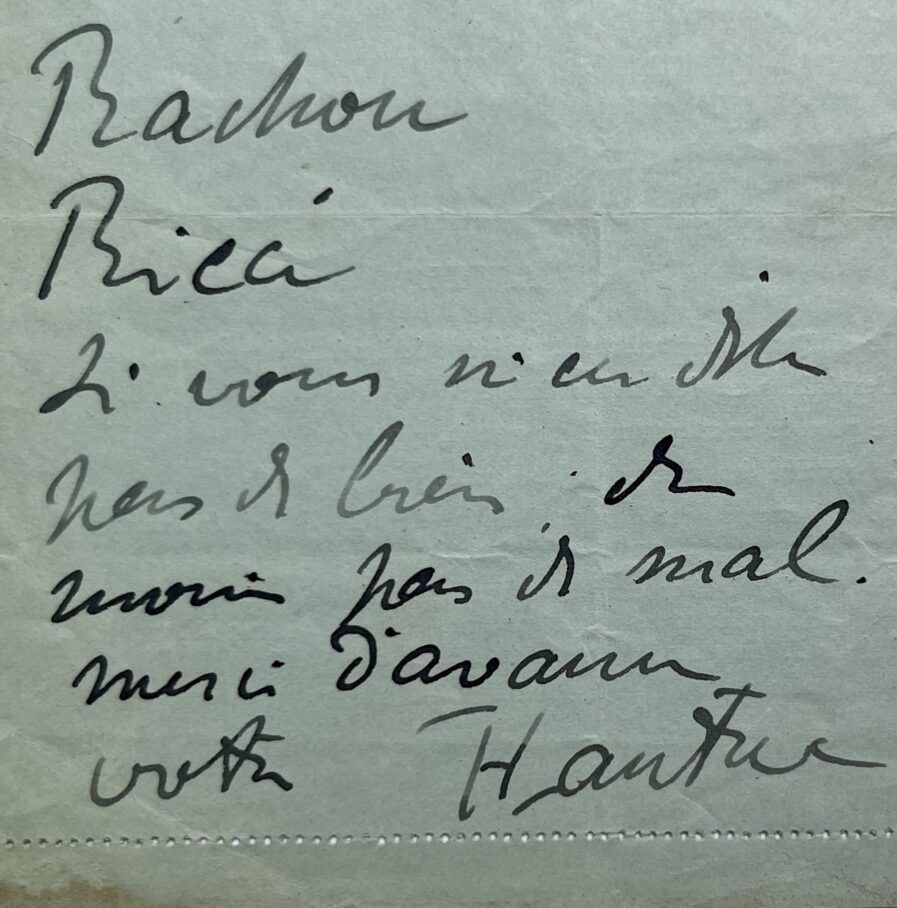 Rachou
Ricci
Si vous n'en dites
pas de bien, du
moins pas de mal.
merci d'avance
votre HLautrec